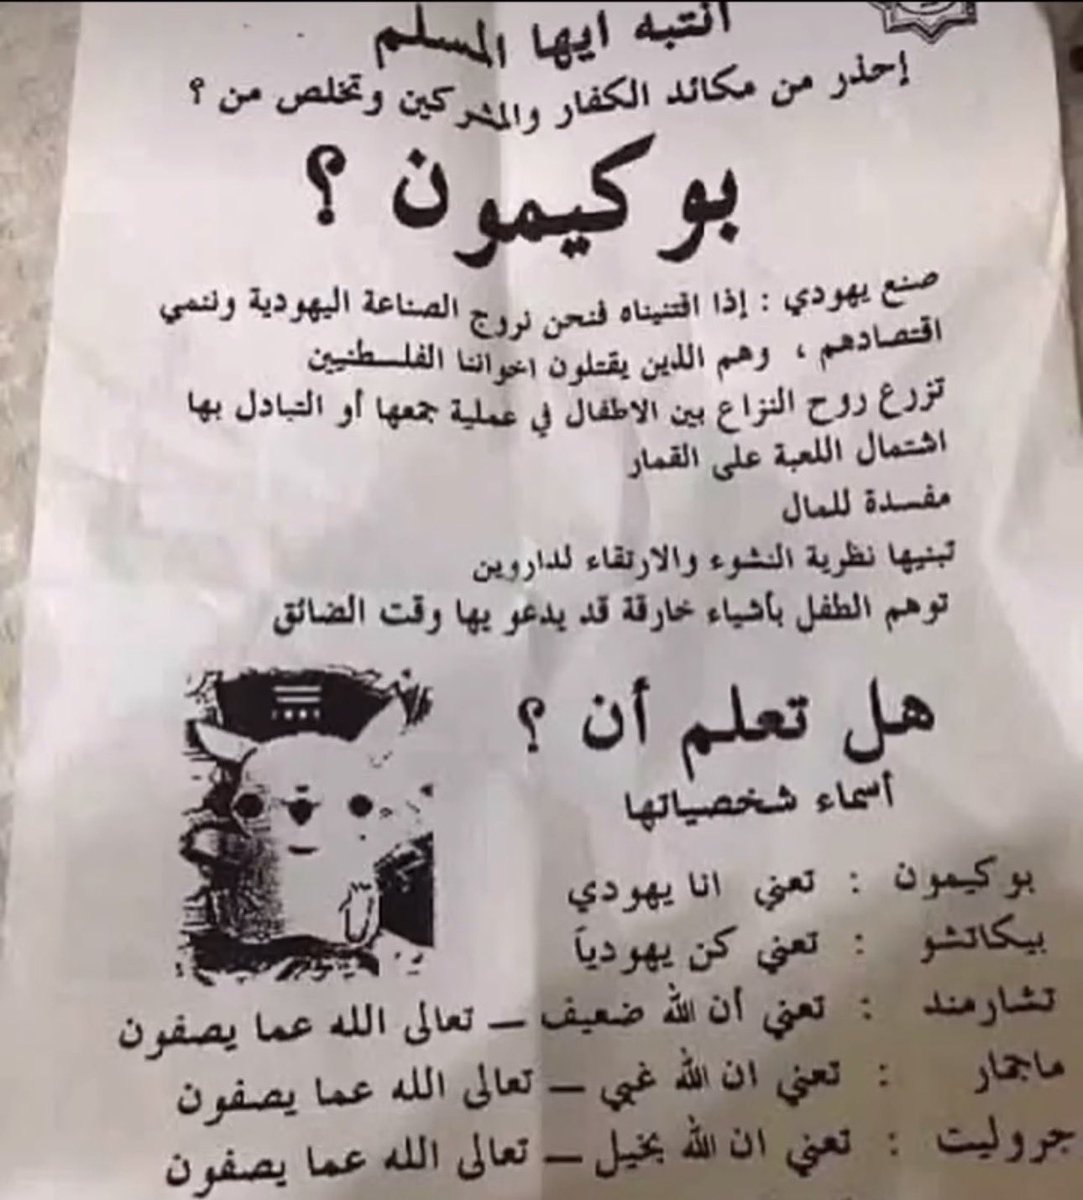 انتبه ايها المسلم
إحذر من مكائد الكفار والمشركين وتخلص من ؟
بوكيمون ؟
صنع يهودي : إذا اقتنيناه فنحن نروج الصناعة اليهودية وننمي
اقتصادهم ، وهم الذين يقتلون اخواننا الفلسطنيين
تزرع روح النزاع بين الاطفال في عملية جمعها أو التبادل بها
اشتمال اللعبة على القمار
مفسدة للمال
تبنيها نظرية النشوء والارتقاء لداروين
توهم الطفل بأشياء خارقة قد يدعو بها وقت الضائق
هل تعلم أن ؟
أسماء شخصياتها
بوكيمون : تعني انا يهودي
بيكاتشو : تعني كن يهودياً
تشارمند : تعني أن الله ضعيف – تعالى الله عما يصفون
ماجمار : تعني ان الله غبي – تعالى الله عما يصفون
جروليت : تعني ان الله بخيل – تعالى الله عما يصفون